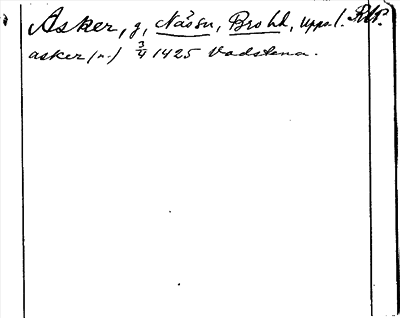 Asker, g, Nåssn, Bro hd, Uppsl. RAP.
asker (n.) 3/4 1425 Vadstena.